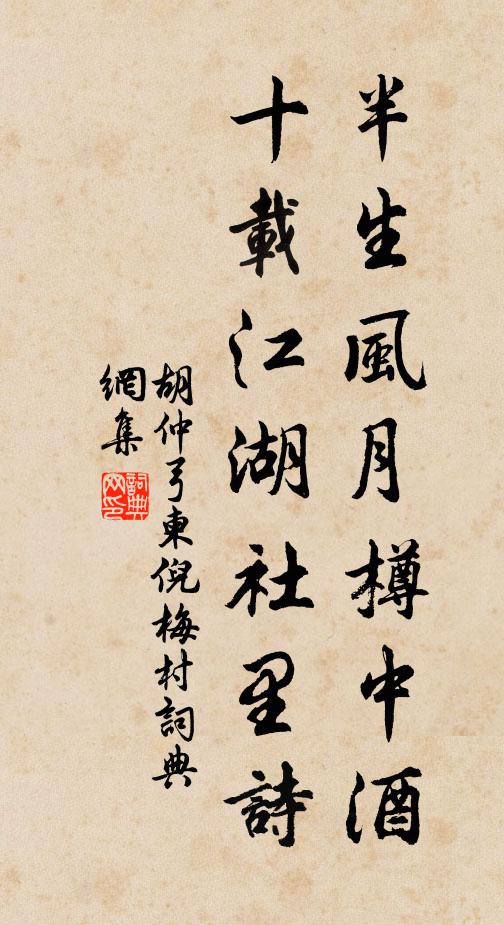 半生風月樽中酒
十載江湖社里詩
胡仲弓東倪梅村詞典
網集
詞典网印